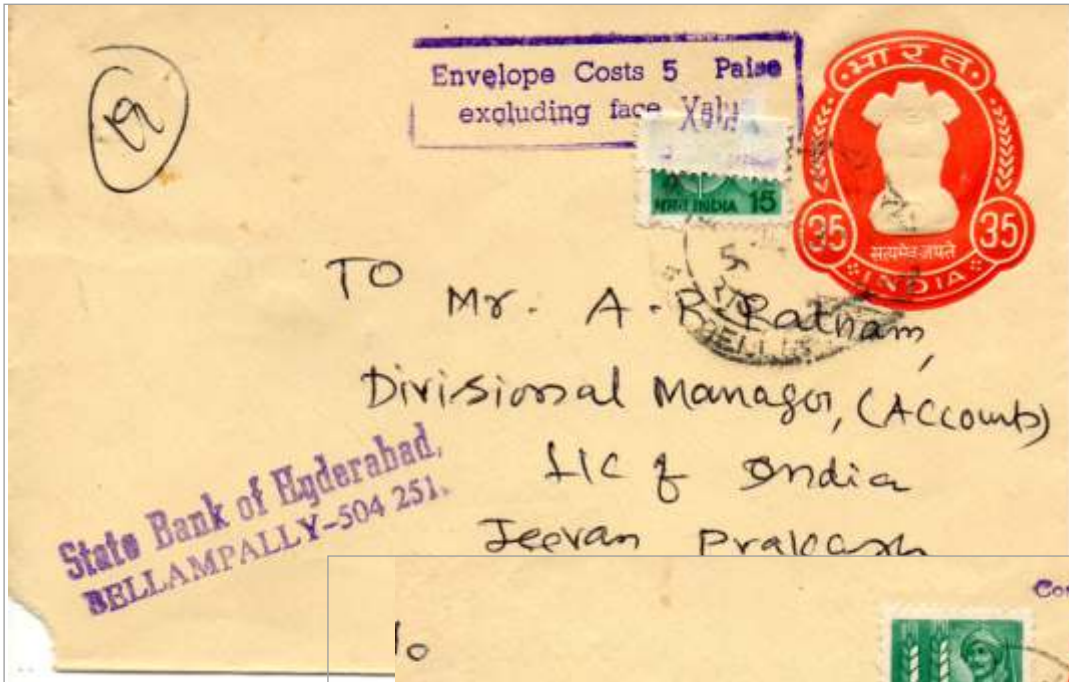 Envelope Costs 5 Paise
excluding face Value
भारत
INDIA 15
35 35
सत्यमेव जयते
INDIA
5
DELHI
TO
Mr. A. R. Ratnam,
Divisional Manager, (Accounts)
LIC of India
Jeevan Prakash
State Bank of Hyderabad,
BELLAMPALLY-504 251.